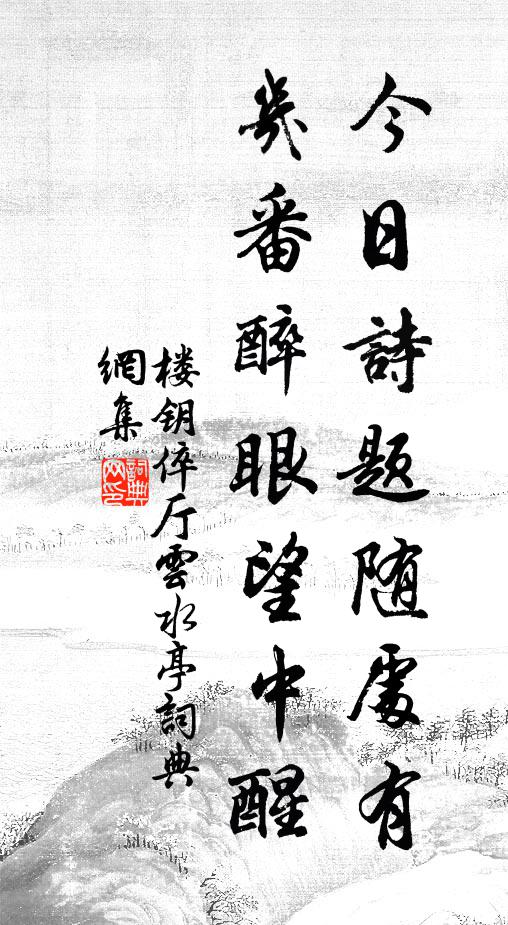 今日詩题随處有
幾番醉眼望中醒
楼钥倅厅雲水亭詞典
網集
詞典
网印